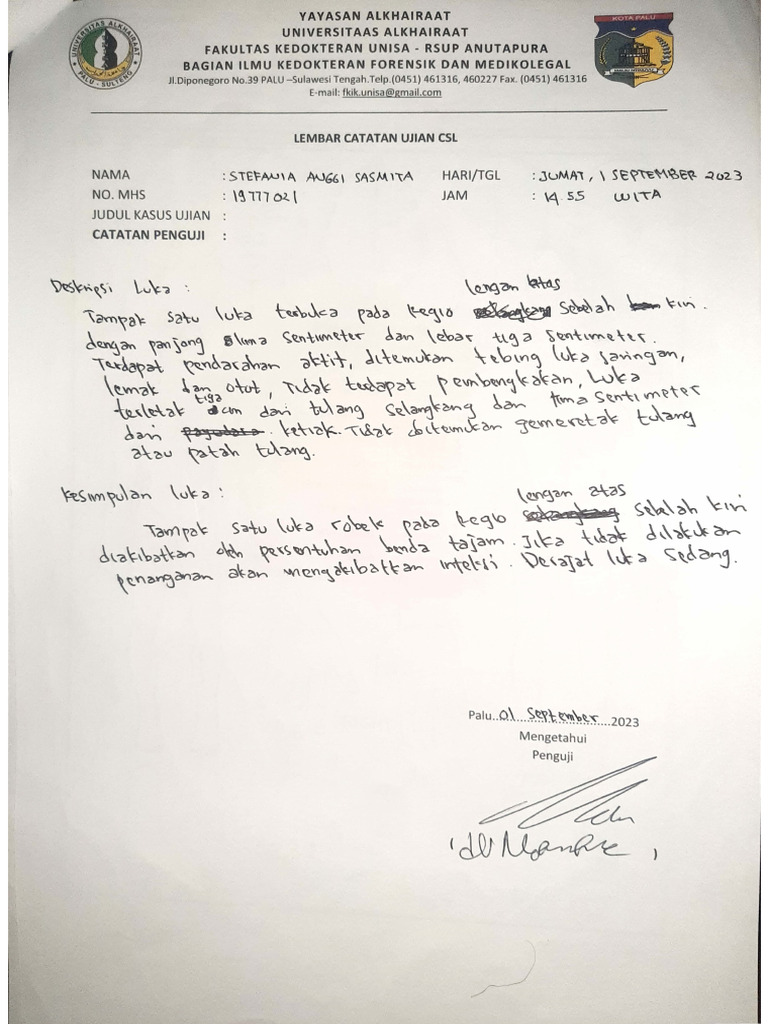 YAYASAN ALKHAIRAAT
UNIVERSITAAS ALKHAIRAAT
FAKULTAS KEDOKTERAN UNISA - RSUP ANUTAPURA
BAGIAN ILMU KEDOKTERAN FORENSIK DAN MEDIKOLEGAL
Jl.Diponegoro No.39 PALU –Sulawesi Tengah.Telp.(0451) 461316, 460227 Fax. (0451) 461316
E-mail: fkik.unisa@gmail.com
UNIVERSITAS ALKHAIRAAT
PALU - SULTENG
KOTA PALU
LEMBAR CATATAN UJIAN CSL
NAMA : STEFANIA ANGGI SASMITA HARI/TGL : JUMAT, 1 SEPTEMBER 2023
NO. MHS : 19777021 JAM : 14.55 WITA
JUDUL KASUS UJIAN :
CATATAN PENGUJI :
Deskripsi Luka :
lengan atas
Tampak satu luka terbuka pada Regio sebelah kiri.
dengan panjang lima sentimeter dan lebar tiga sentimeter.
Terdapat pendarahan aktif, ditemukan tebing luka jaringan,
lemak dan otot, Tidak terdapat pembengkakan, Luka
terletak tiga cm dari tulang selangkang dan lima sentimeter
dari ketiak. Tidak ditemukan gemeretak tulang
atau patah tulang.
Kesimpulan luka :
lengan atas
Tampak satu luka robek pada Regio sebelah kiri
diakibatkan oleh persentuhan benda tajam. Jika tidak dilakukan
penanganan akan mengakibatkan infeksi. Derajat luka sedang.
Palu..01 September...2023
Mengetahui
Penguji